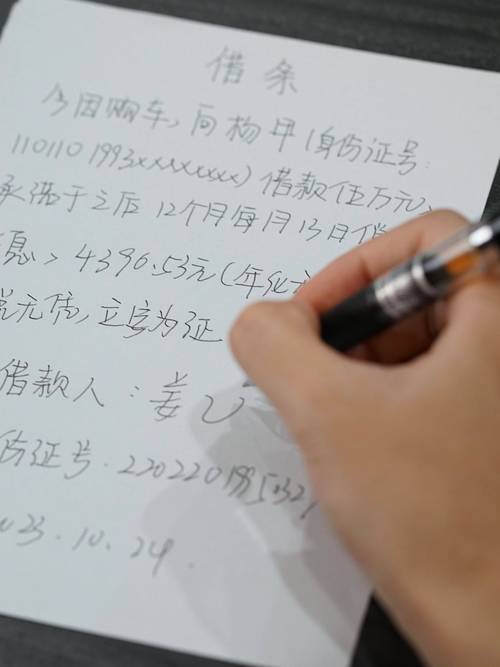 借条
今因购车,向杨甲(身份证号:
110110 1993xxxxxxxx)借款伍万元,
承诺于之后12个月每月13日偿
息>4390.53元(年化
无信,立字为证
借款人:姜
份证号.2202201985032
023.10.24.